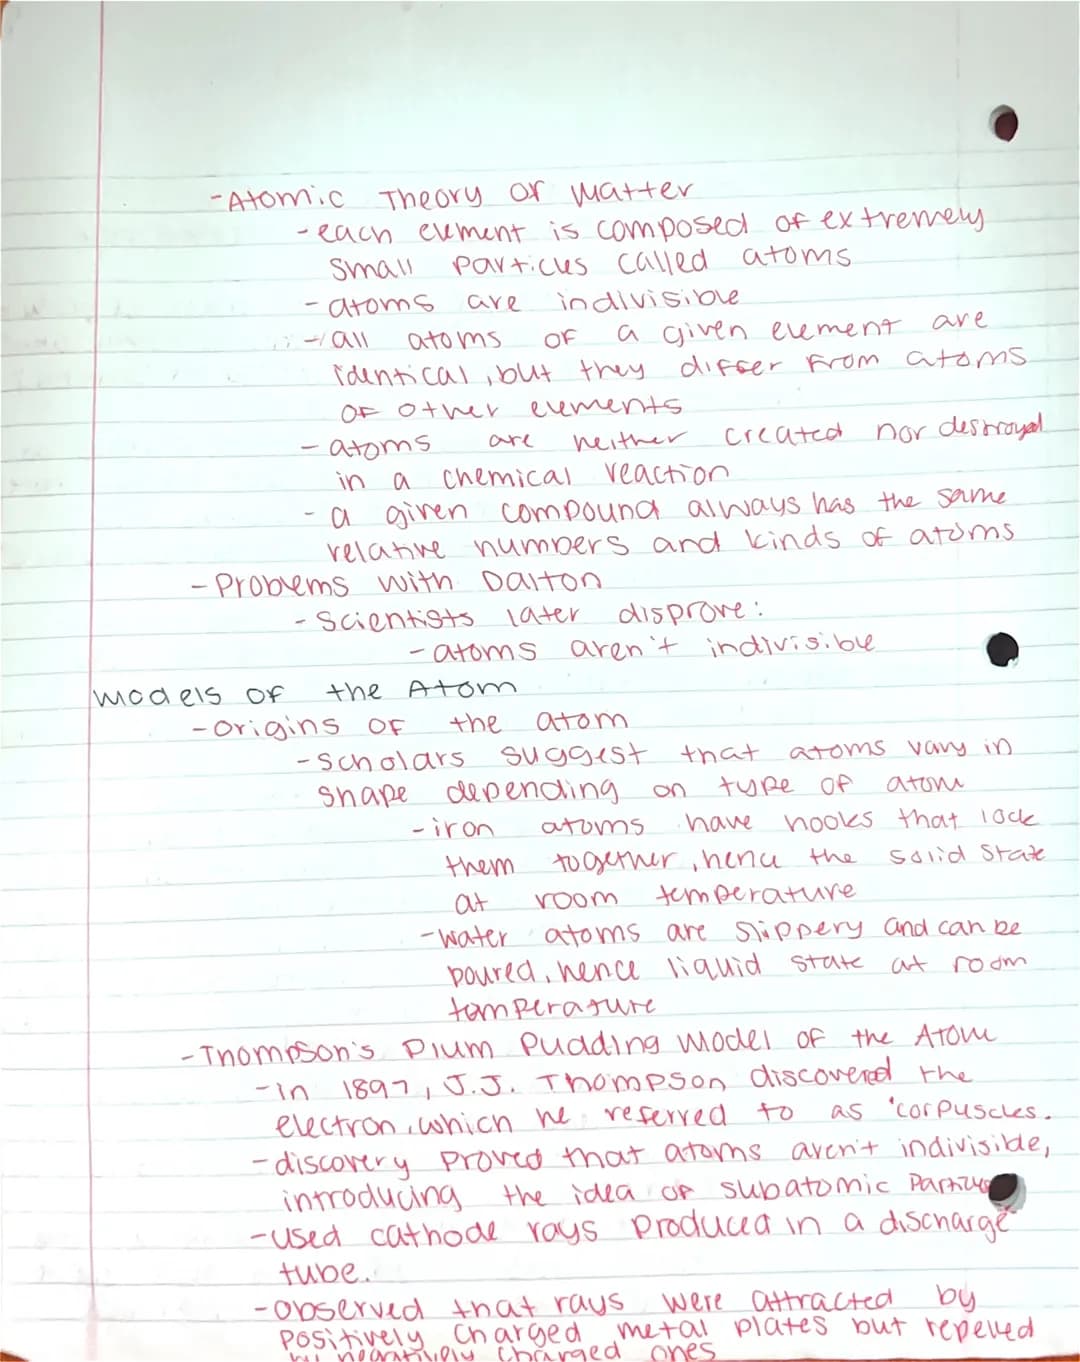 -Atomic Theory of Matter
-each element is composed of extremely
small particles called atoms
-atoms are indivisible
-all atoms of a given element are
identical, but they differ from atoms
of other elements
-atoms are neither created nor destroyed
in a chemical reaction
-a given compound always has the same
relative numbers and kinds of atoms
-Problems with Dalton
-Scientists later disprove:
-atoms aren't indivisible
Models of the Atom
-Origins of the atom
-scholars suggest that atoms vary in
shape depending on type of atom
-iron atoms have hooks that lock
them together, hence the solid state
at room temperature
-water atoms are slippery and can be
poured, hence liquid state at room
temperature
-Thompson's Plum Pudding Model of the Atom
-in 1897, J.J. Thompson discovered the
electron, which he referred to as 'corpuscles.
-discovery proved that atoms aren't indivisible,
introducing the idea of subatomic particles
-used cathode rays produced in a discharge
tube.
-observed that rays were attracted by
positively charged metal plates but repelled
by negatively charged ones